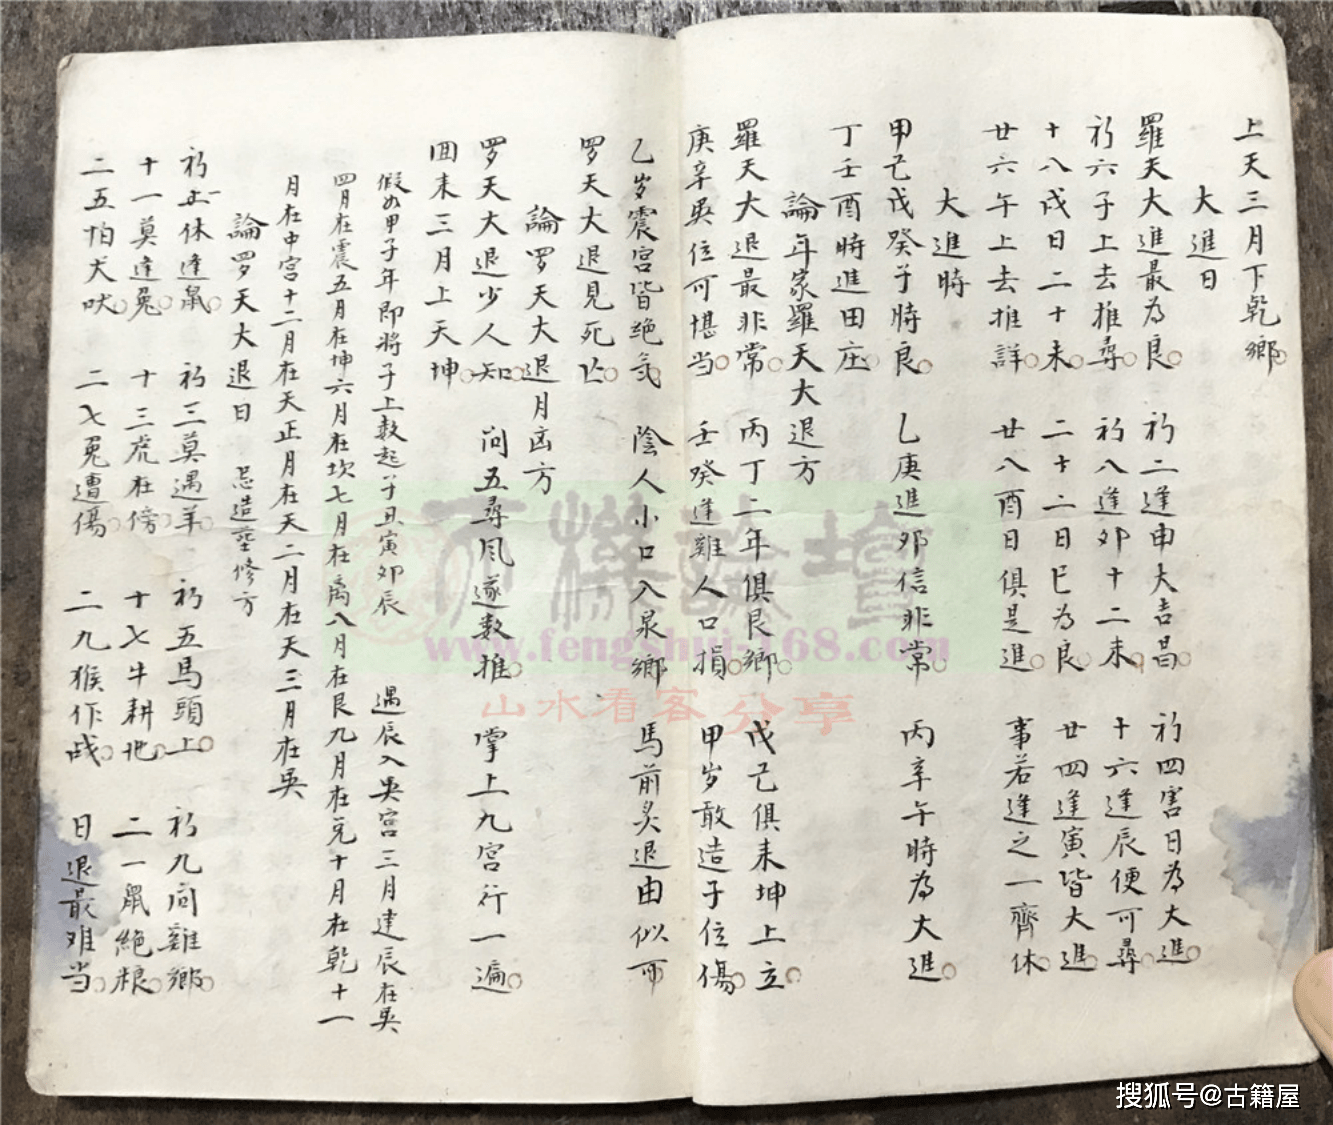 上天三月下乾鄉
大進日
羅天大進最為良 初二逢申大吉昌 初四害日為大進
初六子上去推尋 初八逢卯十二未 十六逢辰便可尋
十八戌日二十未 二十二日巳为良 廿四逢寅皆大進
廿六午上去推詳 廿八酉日俱是進 事若逢之一齊休
大進時
甲己戊癸子時良 乙庚進卯信非常 丙辛午時為大進
丁壬酉時進田庄
論年家羅天大退方
羅天大退最非常 丙丁二年俱艮鄉 戊己俱来坤上立
庚辛巽位可堪当 壬癸逢雞人口損 甲岁敢造子位傷
乙岁震宫皆绝氣 陰人小口入泉鄉 馬前炙退由似可
罗天大退見死亡
論罗天大退月凶方
罗天大退少人知 问五尋風逐数推 掌上九宫行一遍
回来三月上天坤
假如甲子年即將子上数起子丑寅卯辰 遇辰入巽宫三月建辰在巽
四月在震五月在坤六月在坎七月在离八月在艮九月在兑十月在乾十一
月在中宫十二月在天正月在天二月在天三月在巽
論罗天大退日 忌造塟修方
初一休逢鼠 初三莫遇羊 初五馬頭上 初九问雞鄉
十一莫逢兔 十三虎在傍 十七牛耕地 二一鼠絶粮
二五怕犬吠 二七兔遭傷 二九猴作战 日退最难当
天機論壇
www.fengshui-168.com
山水看客分享
搜狐号@古籍屋